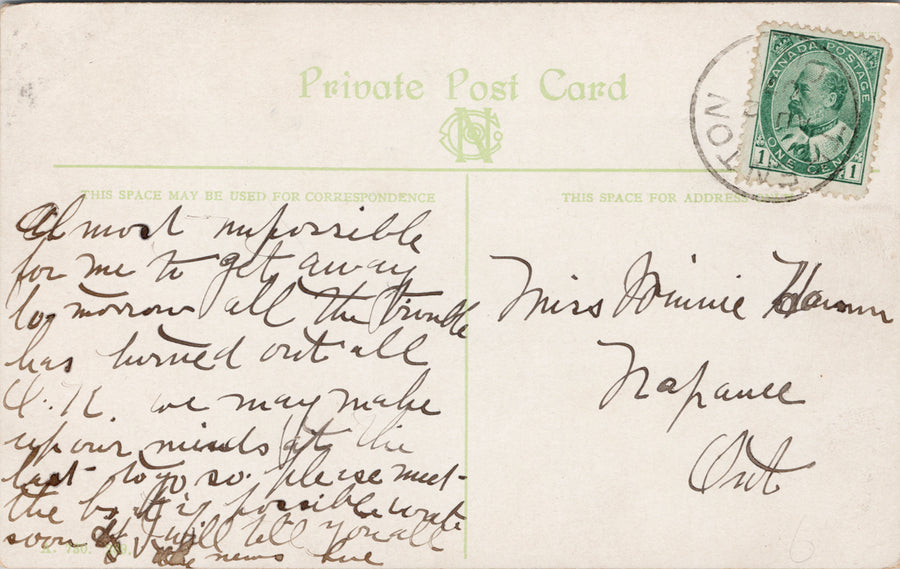 Private Post Card
NCCo
CANADA POSTAGE
ONE CENT
1 1
TON
THIS SPACE MAY BE USED FOR CORRESPONDENCE
THIS SPACE FOR ADDRESS
Almost impossible
for me to get away
to-morrow all the trouble
has turned out all
O.K. we may make
up our minds at the
last to go so please meet
the if possible write
soon I will tell you all
the news
Miss Minnie
Napanee
Ont